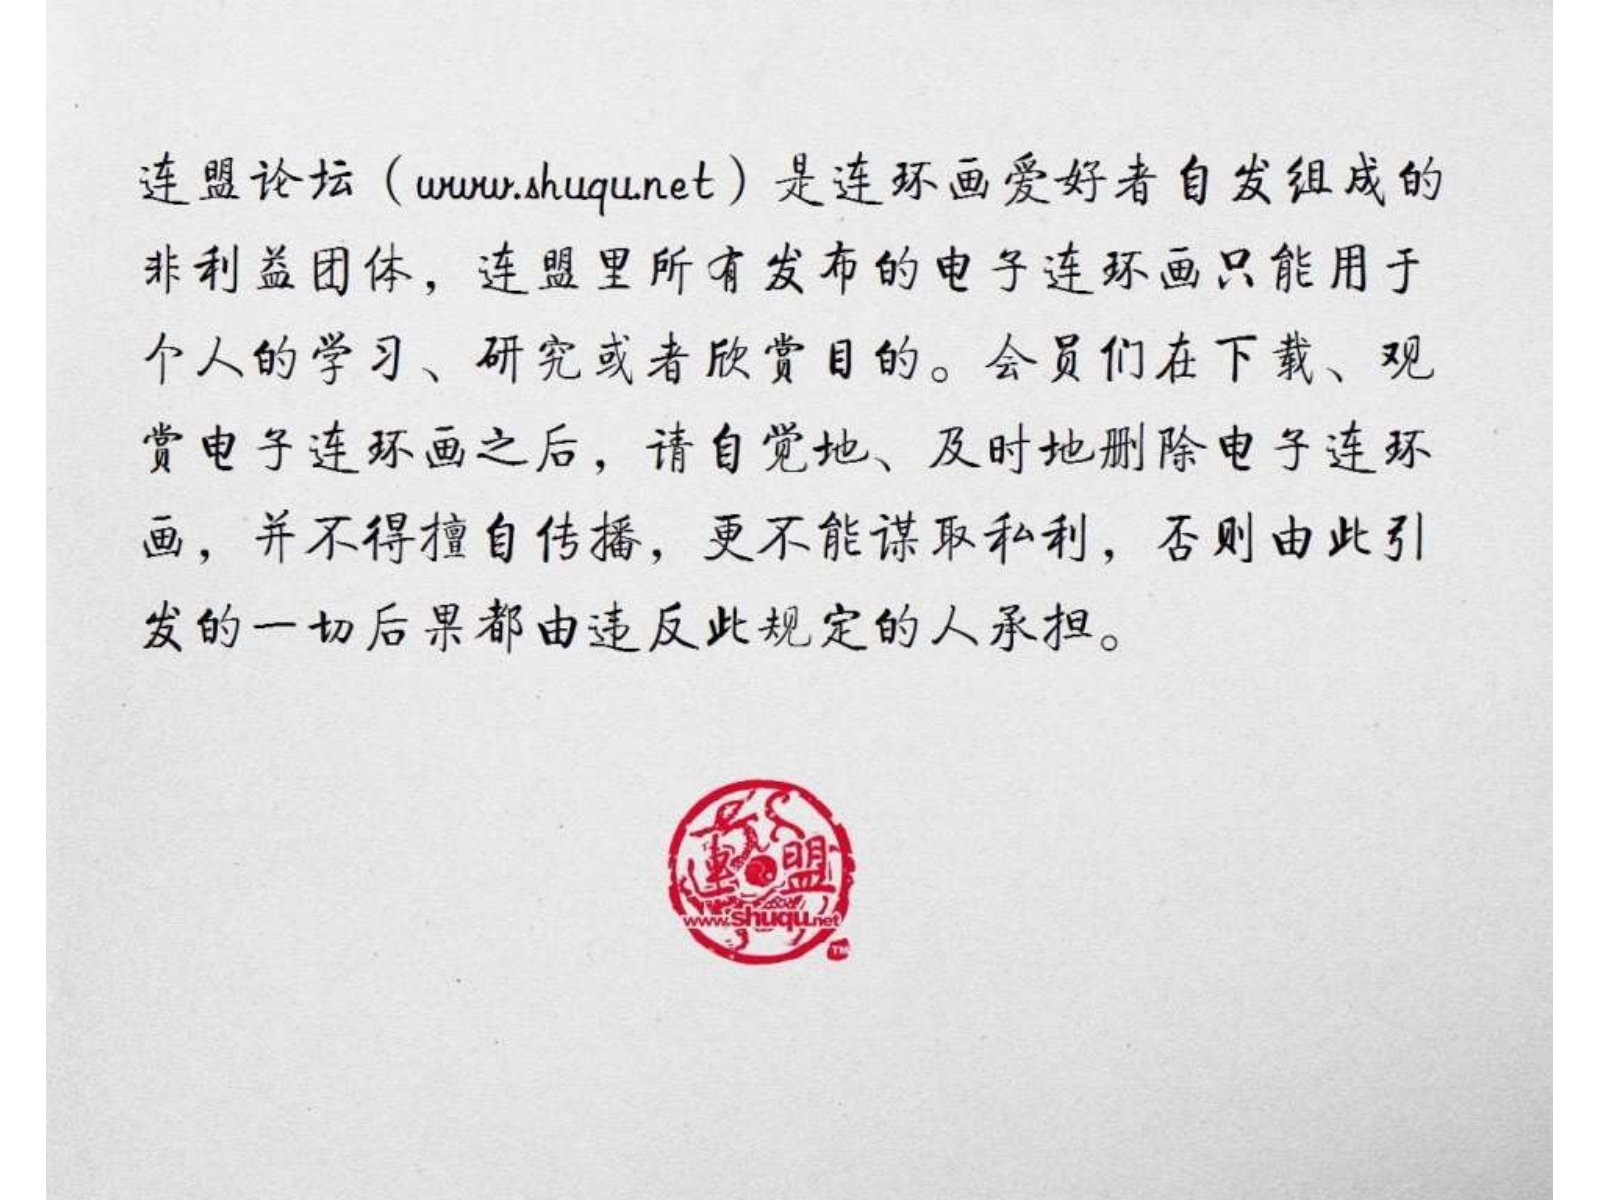 连盟论坛（www.shuqu.net）是连环画爱好者自发组成的
非利益团体，连盟里所有发布的电子连环画只能用于
个人的学习、研究或者欣赏目的。会员们在下载、观
赏电子连环画之后，请自觉地、及时地删除电子连环
画，并不得擅自传播，更不能谋取私利，否则由此引
发的一切后果都由违反此规定的人承担。
連盟
www.shuqu.net
TM